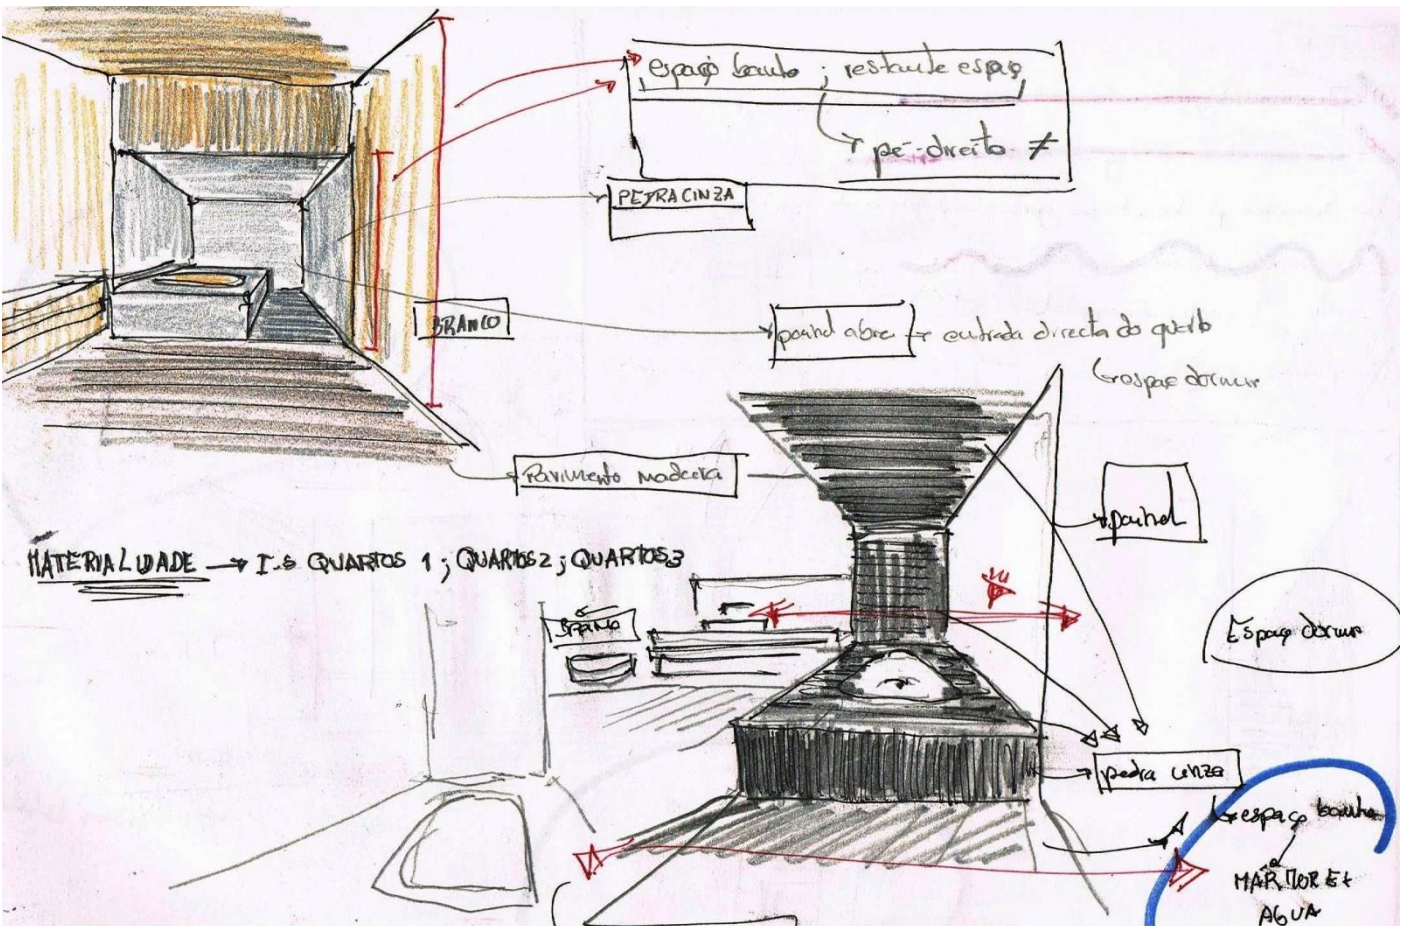 espaço banho ; restante espaço
pé-direito ≠
PEDRA CINZA
BRANCO
painel abre → entrada directa do quarto
↳ espaço dormir
Pavimento madeira
painel
MATERIALIDADE → I.S QUARTOS 1 ; QUARTOS 2 ; QUARTOS 3
Espaço dormir
pedra cinza
↳ espaço banho
MÁRMORE +
AGUA